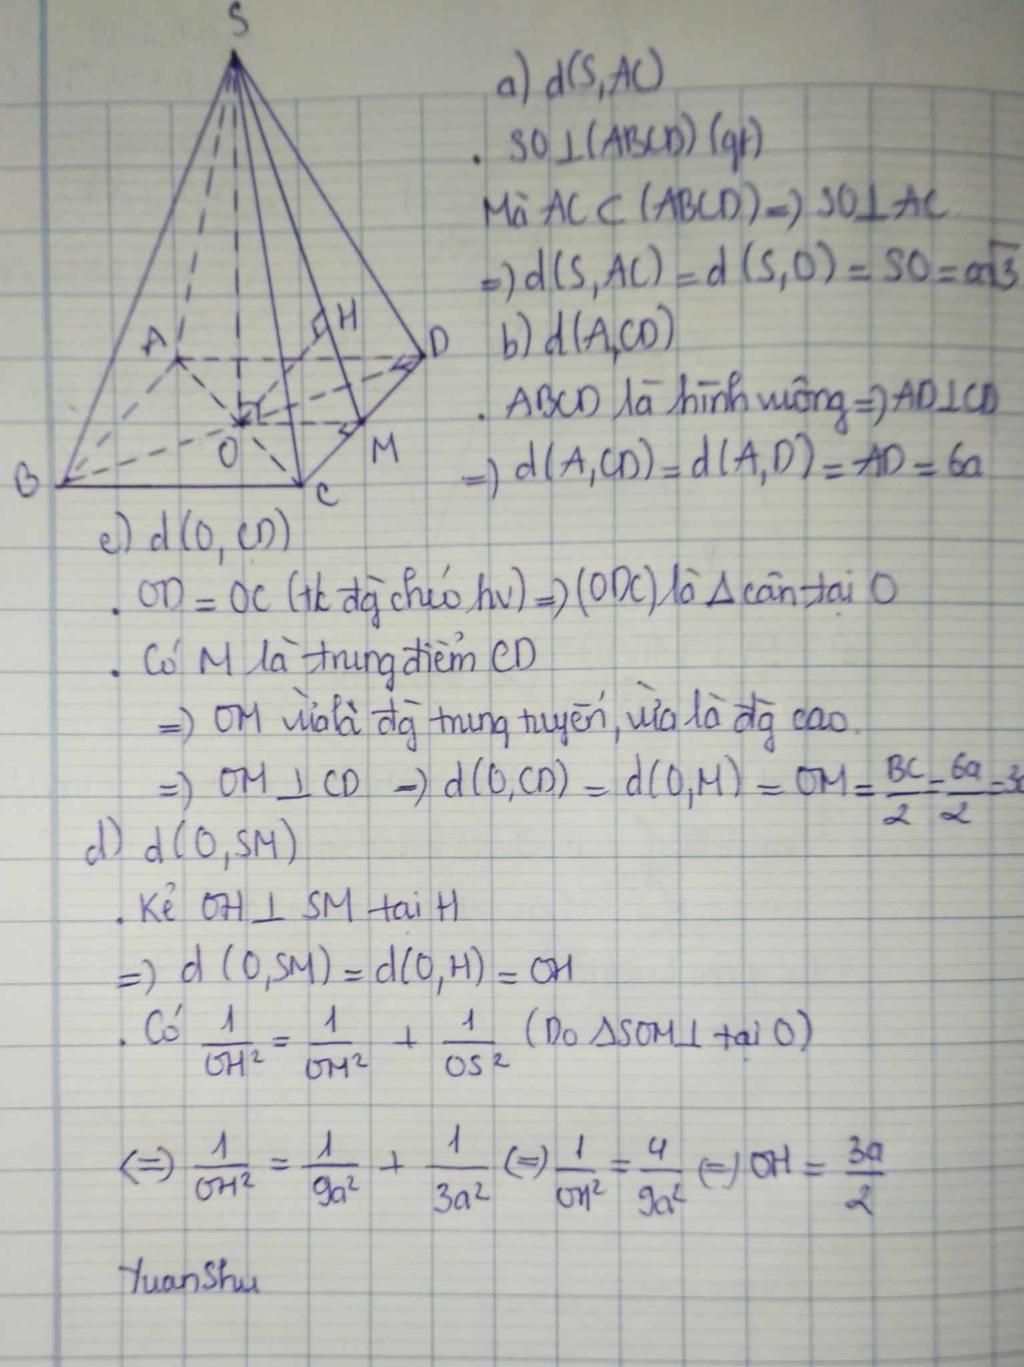 S
a) d(S,AC)
. SO⊥(ABCD) (gt)
Mà AC⊂(ABCD)=) SO⊥AC
=) d(S,AC) = d(S,O) = SO = a√3
A
H
D
b) d(A,CD)
. ABCD là hình vuông =) AD⊥CD
O
M
B
C
=) d(A,CD) = d(A,D) = AD = 6a
c) d(O,CD)
. OD = OC (tc đg chéo hv) =) (ODC) là Δ cân tại O
. Có M là trung điểm CD
=) OM vừa là đg trung tuyến, vừa là đg cao.
=) OM ⊥ CD =) d(O,CD) = d(O,M) = OM = BC/2 = 6a/2 = 3a
d) d(O,SM)
. Kẻ OH ⊥ SM tại H
=) d(O,SM) = d(O,H) = OH
. Có 1/OH² = 1/OM² + 1/OS² (Do ΔSOM⊥ tại O)
(=) 1/OH² = 1/9a² + 1/3a² (=) 1/OH² = 4/9a² (=) OH = 3a/2
YuanShu